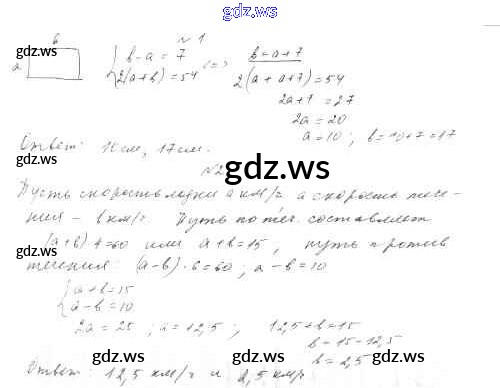 gdz.ws
№ 1
b
a
gdz.ws
{ b-a = 7
2(a+b) = 54 <=> b = a+7
2(a+a+7) = 54
2a+7 = 27
2a = 20
a = 10; b = 10+7 = 17
gdz.ws
Ответ: 10 см, 17 см.
№2
gdz.ws
Пусть скорость лодки a км/ч а скорость тече-
ния - b км/ч. Путь по теч. составляет
(a+b)·4=60 или a+b=15, путь против
течения: (a-b)·6=60; a-b=10
{ a+b=15
a-b=10
2a = 25; a = 12,5; 12,5+b=15
b = 15-12,5
b = 2,5
gdz.ws
gdz.ws
Ответ: 12,5 км/ч и 2,5 км/ч